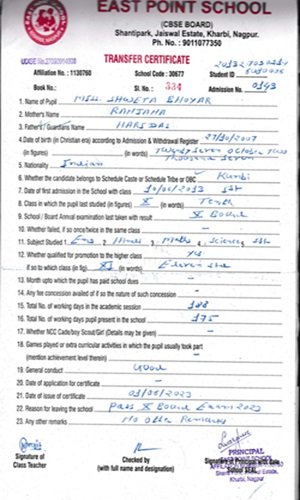 EAST POINT SCHOOL
(CBSE BOARD)
Shantipark, Jaiswal Estate, Kharbi, Nagpur.
Ph. No. : 9011077350
TRANSFER CERTIFICATE
Affiliation No. : 1130760 School Code : 30677 Student ID
Book No.: Sl. No.: 334 Admission No. 0143
1. Name of Pupil MISS. SHWETA BHOYAR
2. Mother's Name RANJANA
3. Father's / Guardians Name HARIDAS
4. Date of birth (in Christian era) according to Admission & Withdrawal Register 27/10/2007
(in figures) (in words) Twenty Seven October Two Thousand Seven
5. Nationality Indian
6. Whether the candidate belongs to Schedule Caste or Schedule Tribe or OBC Kunbi
7. Date of first admission in the School with class 10/06/2013 Ist
8. Class in which the pupil last studied (in figures) X (in words) Tenth
9. School / Board Annual examination last taken with result X Board
10. Whether failed, if so once/twice in the same class —
11. Subject Studied 1. Eng 2. Hindi 3. Maths 4. Science, SSt
12. Whether qualified for promotion to the higher class Yes
if so to which class (in fig) XI (in words) Eleventh
13. Month upto which the pupil has paid school dues —
14. Any fee concession availed of if so the nature of such concession —
15. Total No. of working days in the academic session 188
16. Total No. of working days pupil present in the school 175
17. Whether NCC Cade/boy Scout/Girl (Details may be given) —
18. Games played or extra curricular activities in which the pupil usually took part
(mention achievement level therein) —
19. General conduct Good
20. Date of application for certificate —
21. Date of issue of certificate 01/06/2023
22. Reason for leaving the school Pass X Board Exam 2023
23. Any other remarks No Other Remarks
Signature of
Class Teacher
Checked by
(with full name and designation)
PRINCIPAL
EAST POINT SCHOOL
Signature of Principal with date
School SEAL
Kharbi, Nagpur.